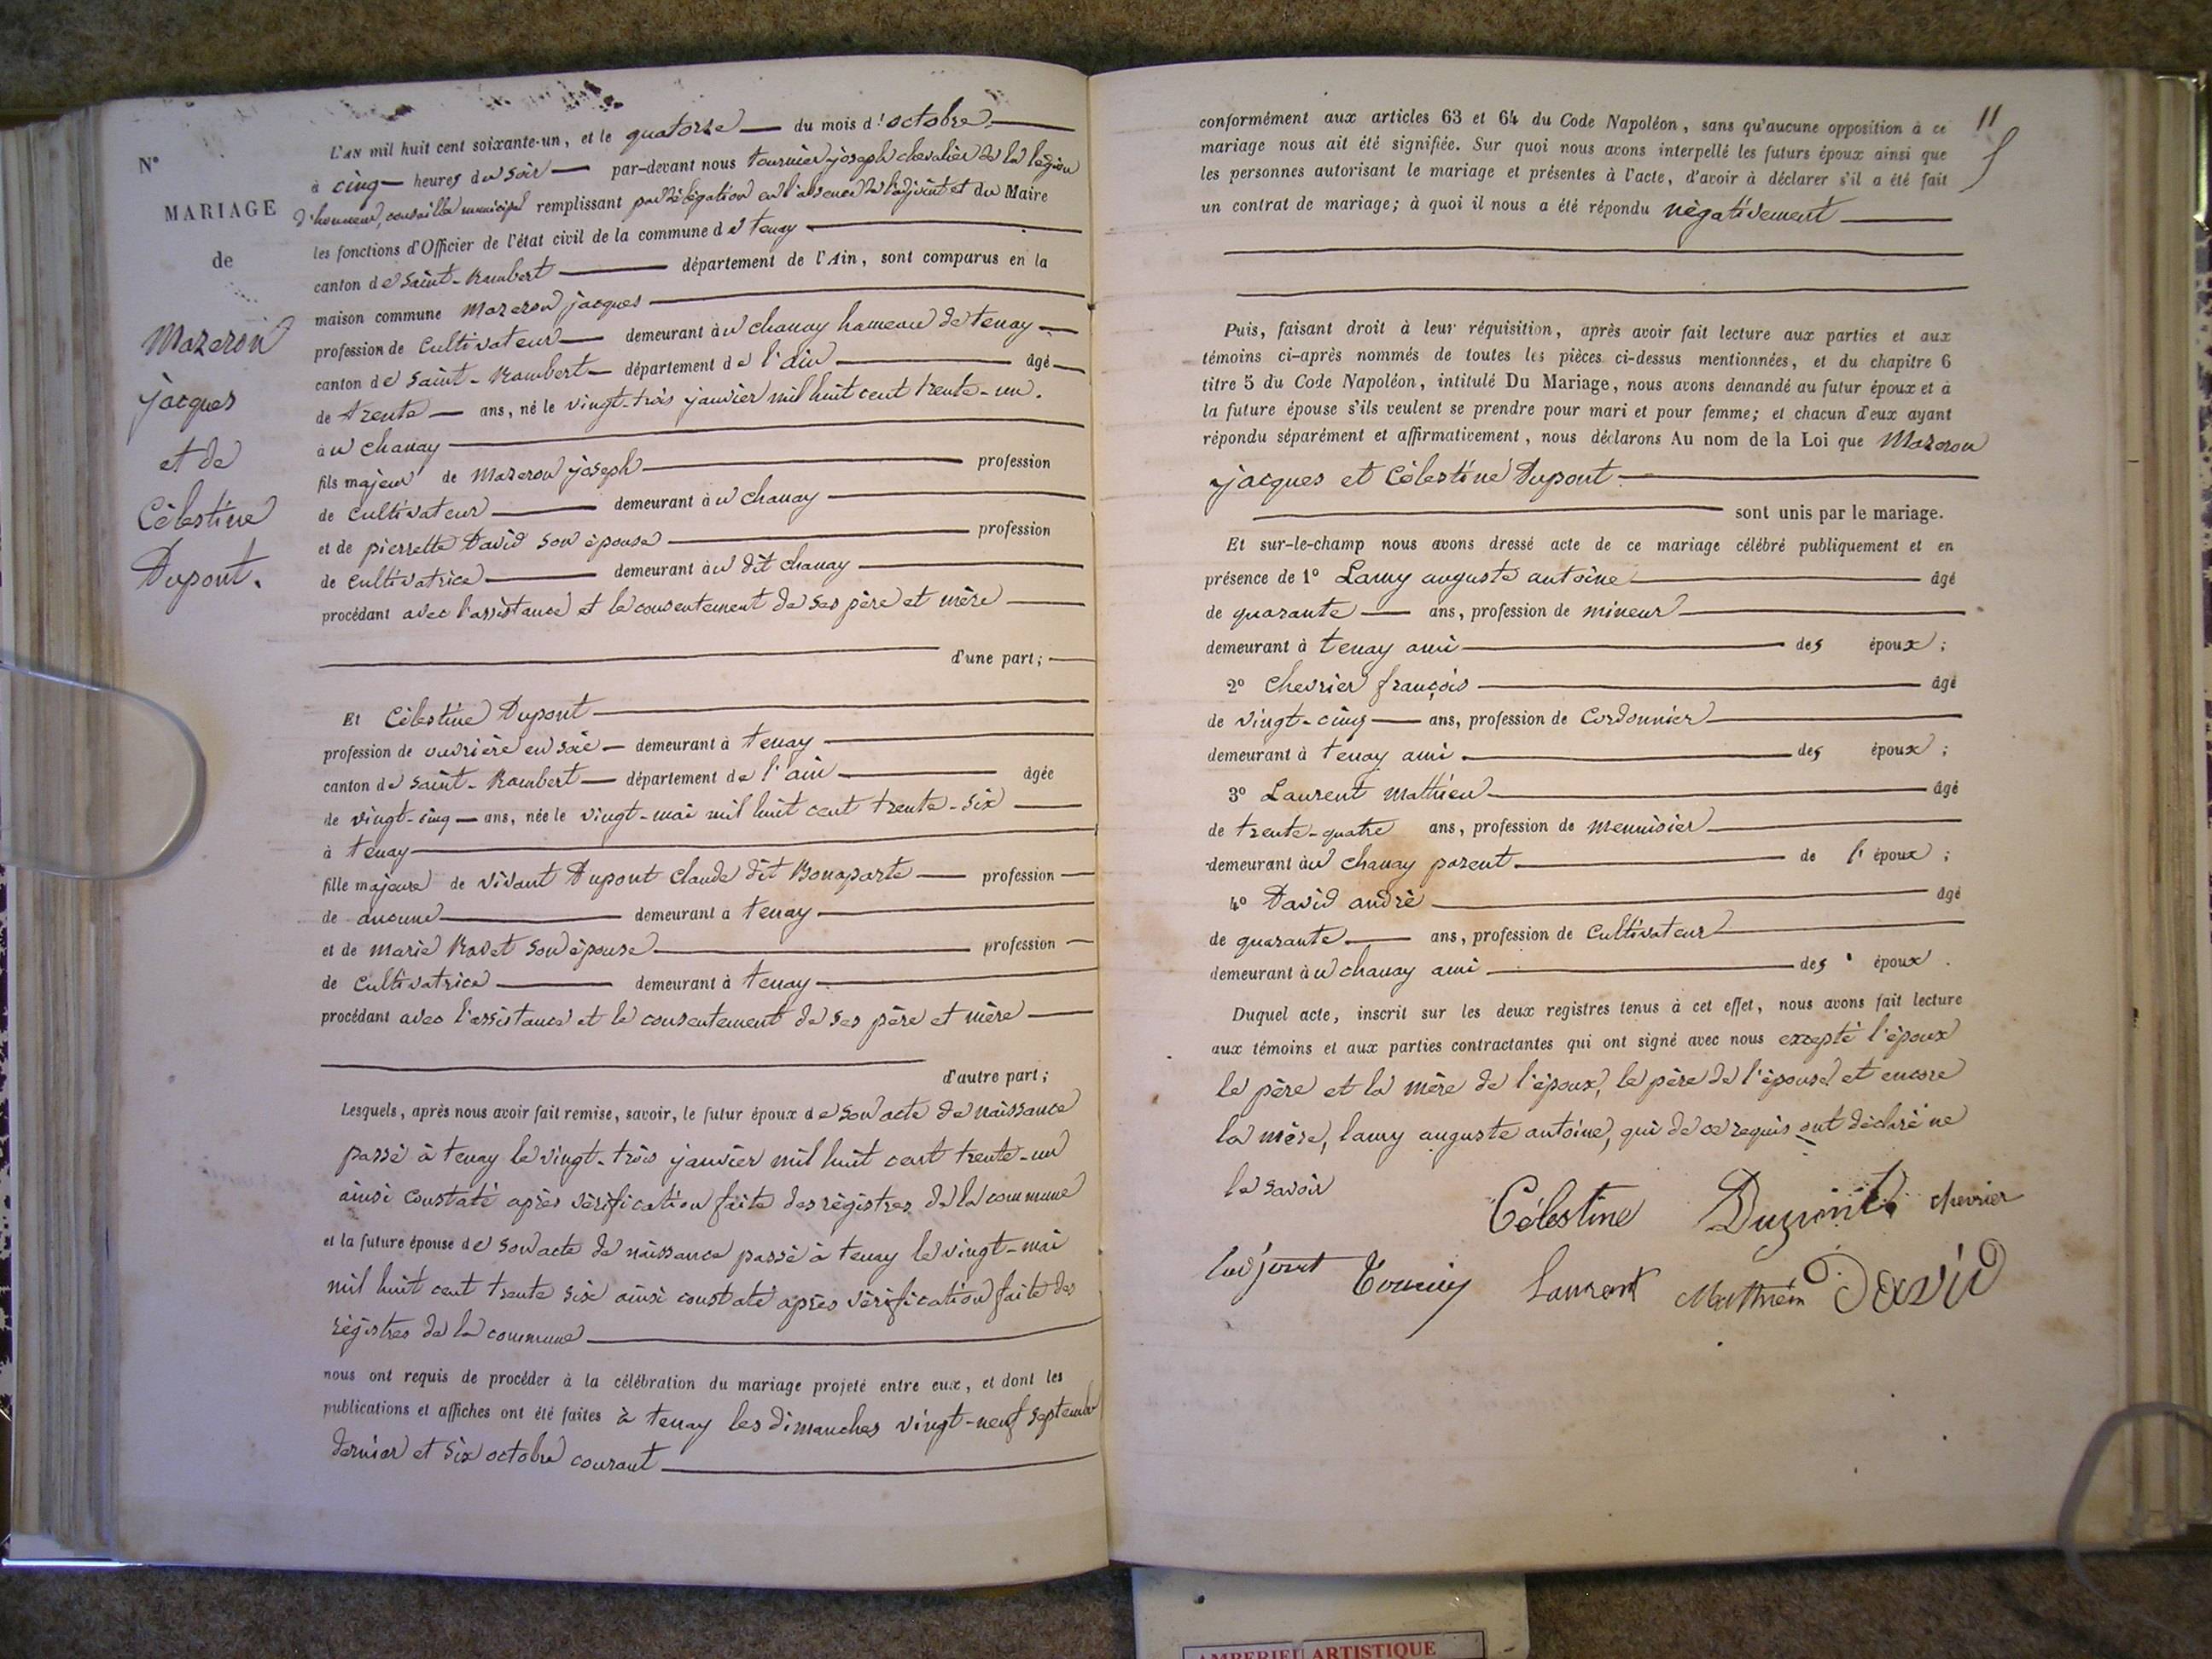 N°
MARIAGE
de
Mazeron
jacques
et de
Célestine
Dupont.
L'AN mil huit cent soixante-un, et le quatorze du mois d'octobre
à cinq heures du soir par-devant nous tournier joseph chevalier de la légion
d'honneur, conseiller municipal remplissant par délégation en l'absence de l'adjoint et du Maire
les fonctions d'Officier de l'état civil de la commune de tenay
canton de saint-Rambert département de l'Ain, sont comparus en la
maison commune Mazeron jacques
profession de Cultivateur demeurant à chanay hameau de tenay
canton de saint-Rambert département de l'ain âgé
de trente ans, né le vingt-trois janvier mil huit cent trente-un.
à chanay
fils majeur de Mazeron joseph profession
de cultivateur demeurant à chanay
et de pierrette David son épouse profession
de cultivatrice demeurant à dit chanay
procédant avec l'assistance et le consentement de ses père et mère
d'une part;
Et Célestine Dupont
profession de ouvrière en soie demeurant à tenay
canton de saint-Rambert département de l'ain âgée
de vingt-cinq ans, née le vingt-mai mil huit cent trente-six
à tenay
fille majeure de vivant Dupont Claude dit Bonaparte profession
de aucune demeurant à tenay
et de marie Ravet son épouse profession
de cultivatrice demeurant à tenay
procédant avec l'assistance et le consentement de ses père et mère
d'autre part;
Lesquels, après nous avoir fait remise, savoir, le futur époux de son acte de naissance
passé à tenay le vingt-trois janvier mil huit cent trente-un
ainsi constaté après vérification faite des régistres de la commune
et la future épouse de son acte de naissance passé à tenay le vingt-mai
mil huit cent trente six ainsi constaté après vérification faite des
régistres de la commune
nous ont requis de procéder à la célébration du mariage projeté entre eux, et dont les
publications et affiches ont été faites à tenay les dimanches vingt-neuf septembre
dernier et six octobre courant
11
conformément aux articles 63 et 64 du Code Napoléon, sans qu'aucune opposition à ce
mariage nous ait été signifiée. Sur quoi nous avons interpellé les futurs époux ainsi que
les personnes autorisant le mariage et présentes à l'acte, d'avoir à déclarer s'il a été fait
un contrat de mariage; à quoi il nous a été répondu négativement
Puis, faisant droit à leur réquisition, après avoir fait lecture aux parties et aux
témoins ci-après nommés de toutes les pièces ci-dessus mentionnées, et du chapitre 6
titre 5 du Code Napoléon, intitulé Du Mariage, nous avons demandé au futur époux et à
la future épouse s'ils veulent se prendre pour mari et pour femme; et chacun d'eux ayant
répondu séparément et affirmativement, nous déclarons Au nom de la Loi que Mazeron
jacques et Célestine Dupont
sont unis par le mariage.
Et sur-le-champ nous avons dressé acte de ce mariage célébré publiquement et en
présence de 1° Lamy auguste antoine âgé
de quarante ans, profession de mineur
demeurant à tenay ami des époux;
2° Chevrier françois âgé
de vingt-cinq ans, profession de Cordonnier
demeurant à tenay ami des époux;
3° Laurent Mathieu âgé
de trente-quatre ans, profession de menuisier
demeurant à chanay parent de l'époux;
4° David andré âgé
de quarante ans, profession de cultivateur
demeurant à chanay ami des époux.
Duquel acte, inscrit sur les deux registres tenus à cet effet, nous avons fait lecture
aux témoins et aux parties contractantes qui ont signé avec nous excepté l'époux
le père et la mère de l'époux, le père de l'épouse et encore
la mère, lamy auguste antoine, qui de ce requis ont déclaré ne
le savoir
Célestine Dupont chevrier
Laurent Mathieu David
AMBERIEU ARTISTIQUE